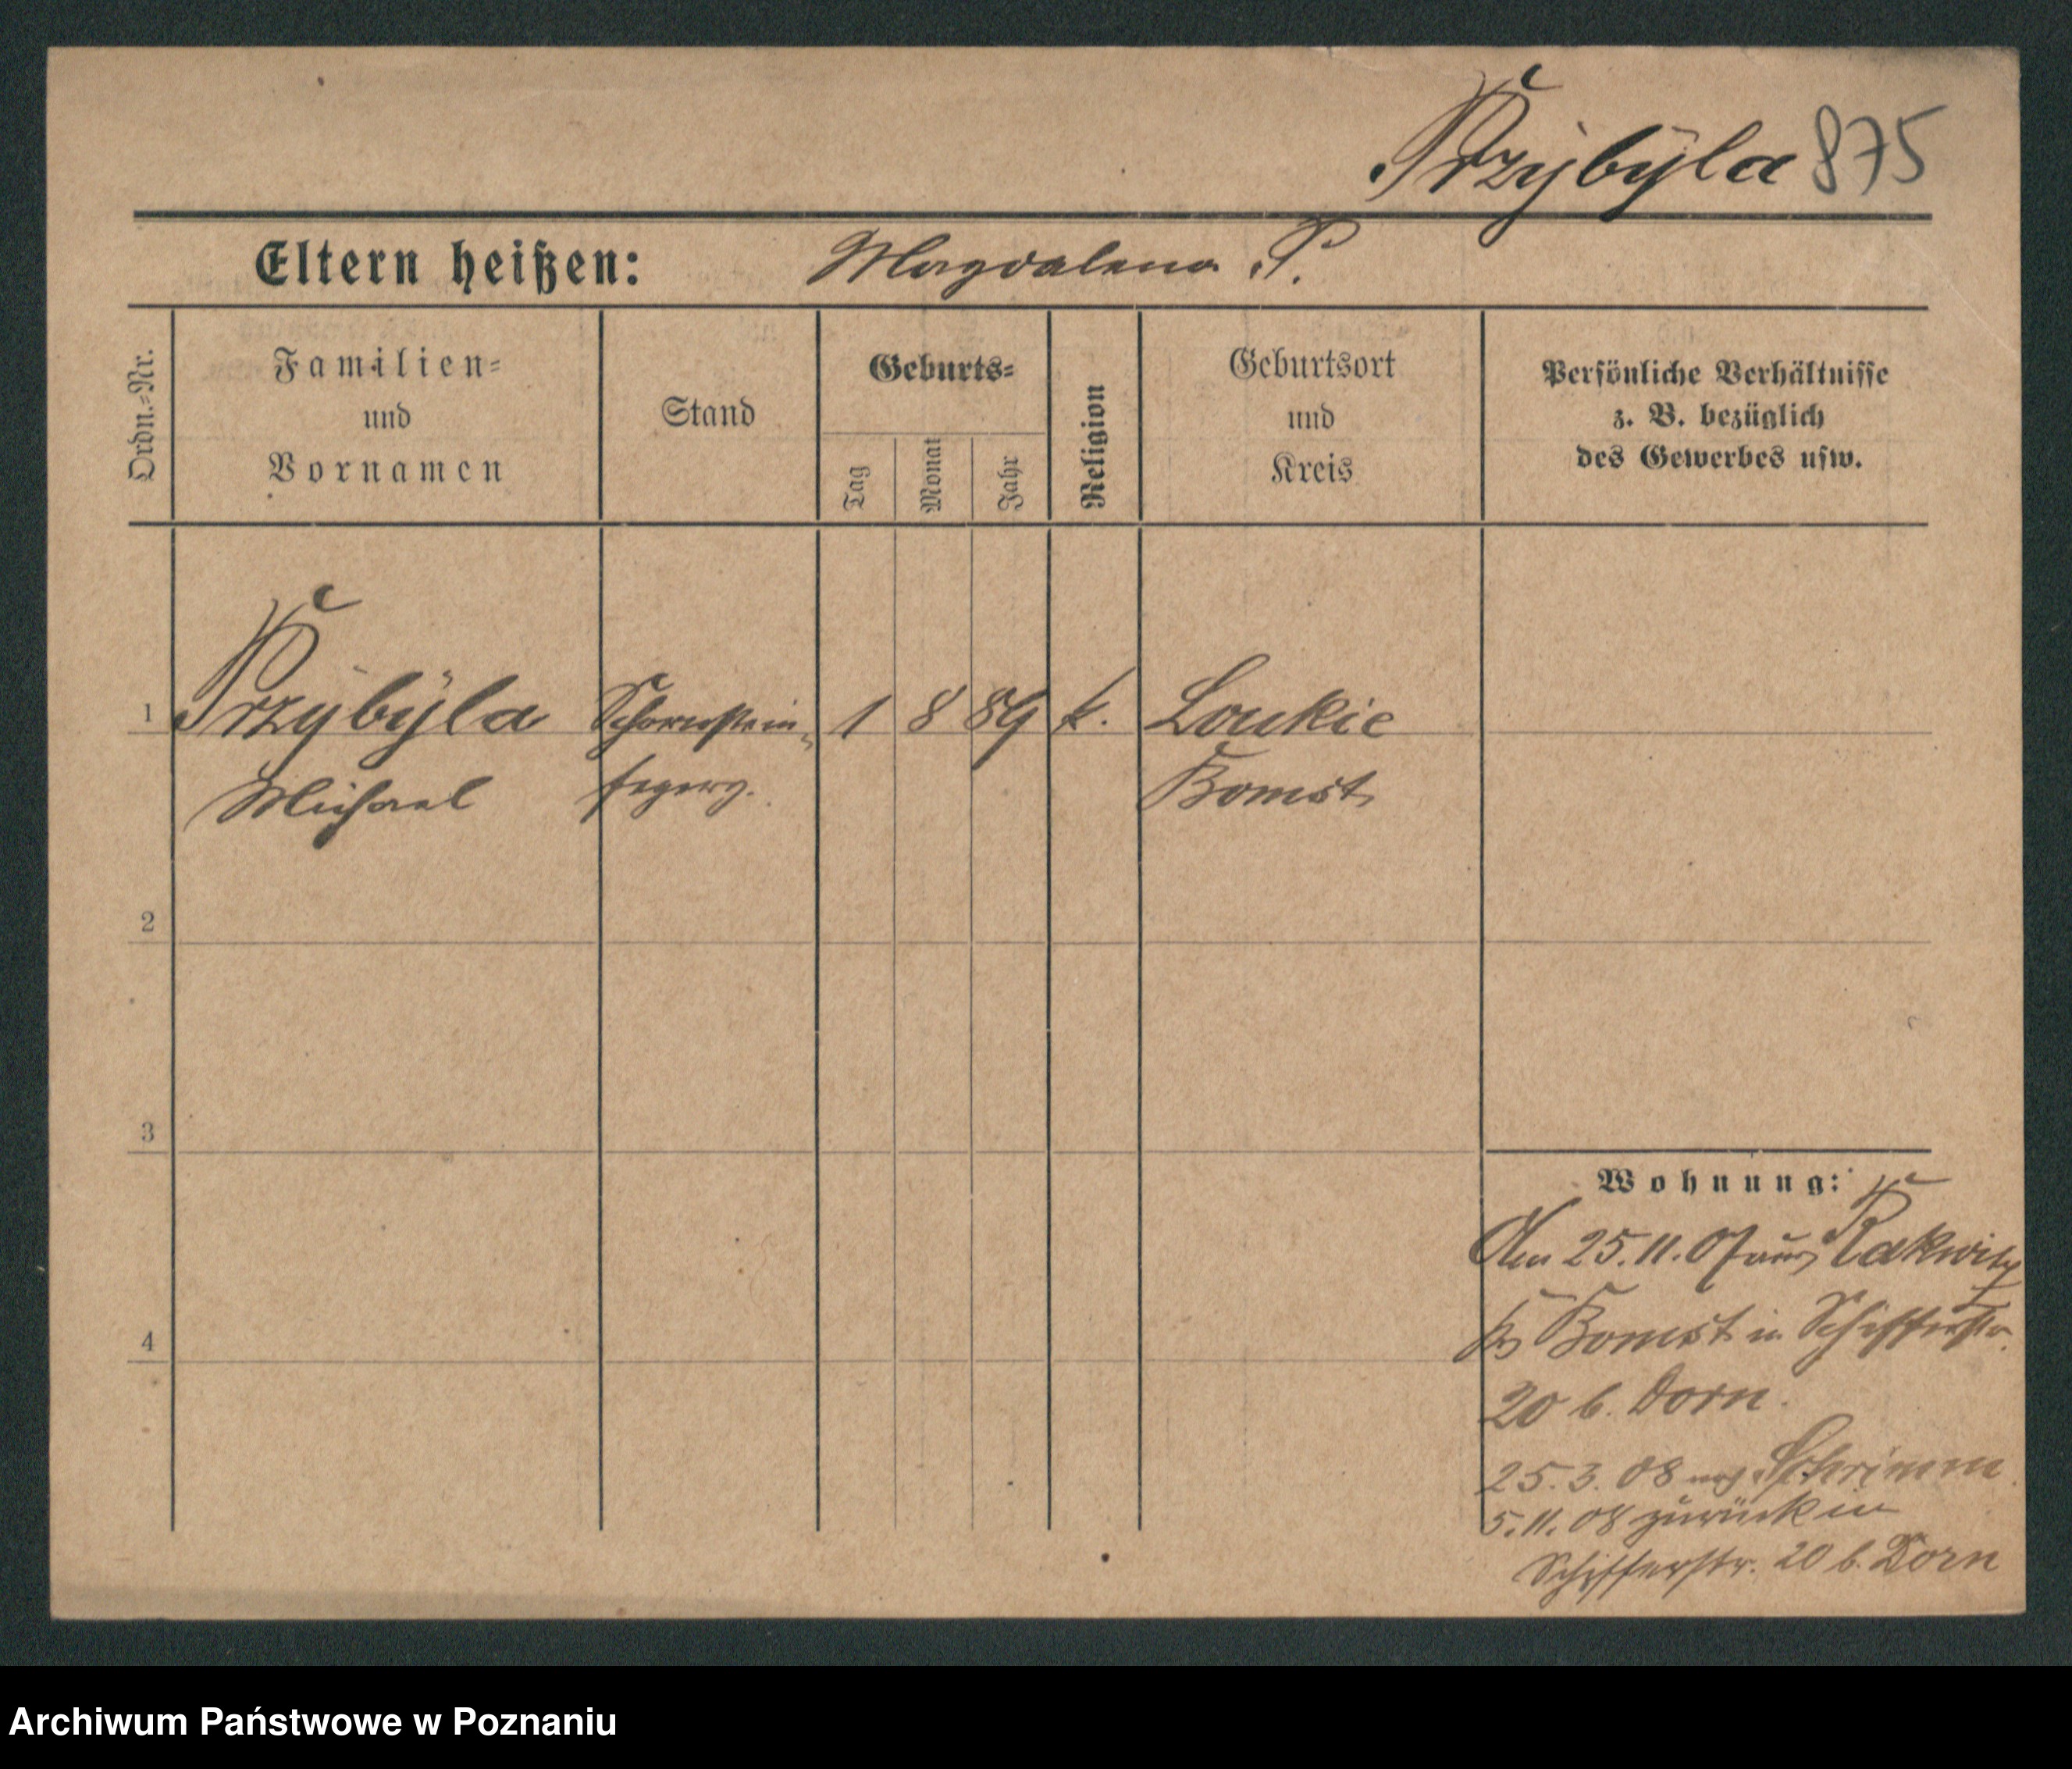 Przybÿla 875
Eltern heißen: Magdalena P.
Ordn.-Nr.
Familien-
und
Vornamen
Stand
Geburts-
Tag
Monat
Jahr
Religion
Geburtsort
und
Kreis
Persönliche Verhältnisse
z. B. bezüglich
des Gewerbes usw.
1 Przybÿla Schornstein- 1 8 89 k. Loukie
Michael fegerg. Bomst
2
3
4
Wohnung:
Am 25.11.07 aus Rakwitz
Bomst in Schifferstr.
20 b. Dorn.
25.3.08 nach Schrimm
5.11.08 zurück in
Schifferstr. 20 b. Dorn
Archiwum Państwowe w Poznaniu